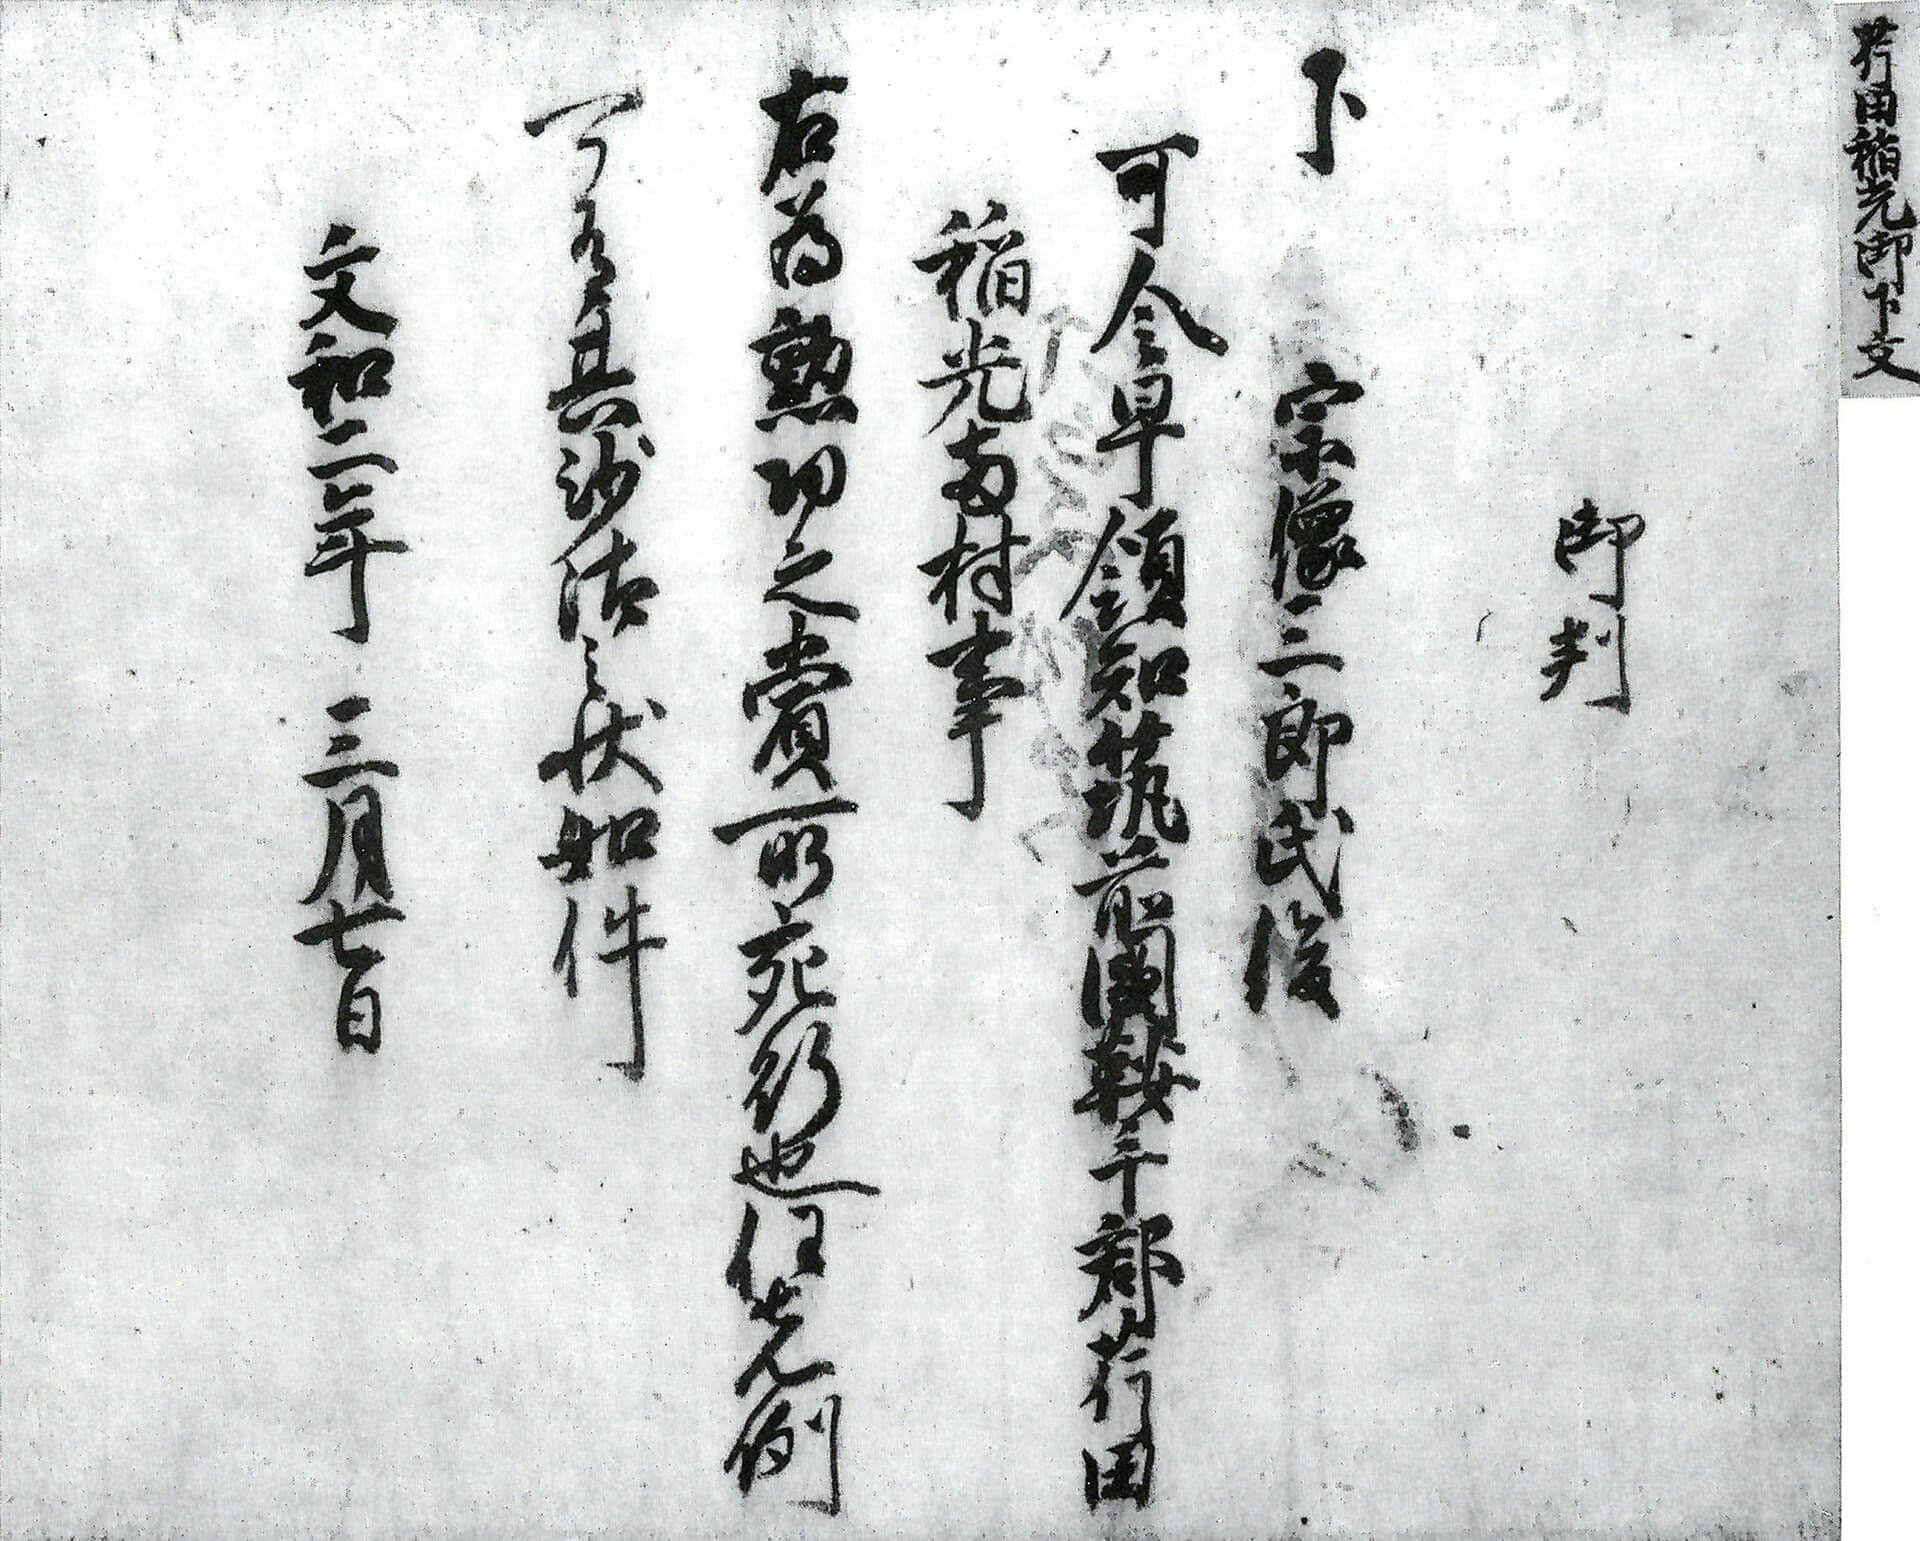 荇田稲光御下文
御判
下　宗像三郎氏俊
可令早領知筑前國鞍手郡荇田
稲光両村事
右為勲功之賞所宛行也任先例
可有其沙汰之状如件
文和二年三月七日